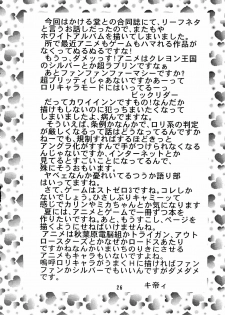 今回はかける堂との合同誌にて、リーフネタ
と言うお話しだったのですが、またもや
ホワイトアルバムを描いてしまいました。
所で最近アニメもゲームもハマれる作品が
なくってぬるぬるですね!
もう、ダメッす!アニメはクレヨン王国
のシルバーとか超ラブリンですなぁ。
あとファンファンファーマシィーですか!
超ブリッティじゃあないですか!
ロリキャラモードにはいってるーっ
ビックリダー
だってカワイインンですもの!なんだか
描きもしないのに犯っちまいたくなって
しまいましたよ、病んでますな。
そういえば、条例かなんかで、ロリ系の判定
が厳しくなるって話はどうなってるんですか
ねーでも、規制すればするほどきっと
アングラ化がすすんで手がつけられなくなる
んじゃないですか、インターネットとか
見てるとすごいことになってるんで、
殊にそうおもいます。
ヤベェなんか憂いてるっつうか語り部
はいってますね。
さて、ゲームはストゼロ3ですね、コレしか
ないでしょう、ひさしぶりキャミーって
感じでカリンやミカちゃんとか気になります
夏には、アニメとゲームで一冊ずつ本を
作りたいんですけど、もう、あんまし、ページを
描いてしまうとぜいはいえませんね。
アニメは秋葉原電脳組かトライガン、アウト
ロースターズとかなぜかロードスあたり
ですからなにせうるさいですから
アニメもキャラもいいですね。
嗚呼ロリキャラがうまくHに描ければファン
ファンかシルバーでもいいんすがダメダメ
です。
キ帝ィ
26